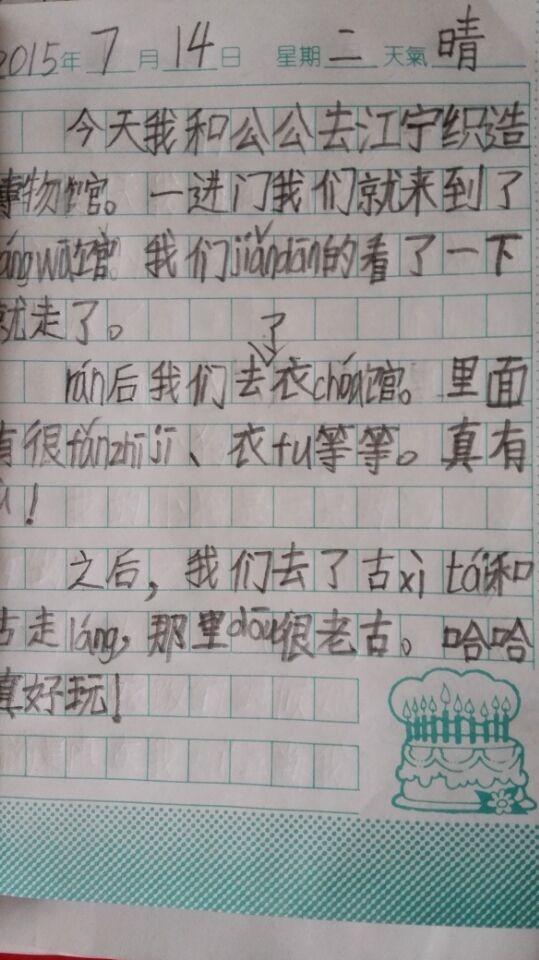 2015年 7 月 14 日 星期 二 天氣 晴
今天我和公公去江宁织造
博物馆。一进门我们就来到了
áng wū馆。我们jiǎndān的看了一下
就走了。
了
rán后我们去衣cháo馆。里面
有很fánzhījī、衣fu等等。真有
!
之后，我们去了古xì tái和
古走láng，那里dōu很老古。哈哈
真好玩！